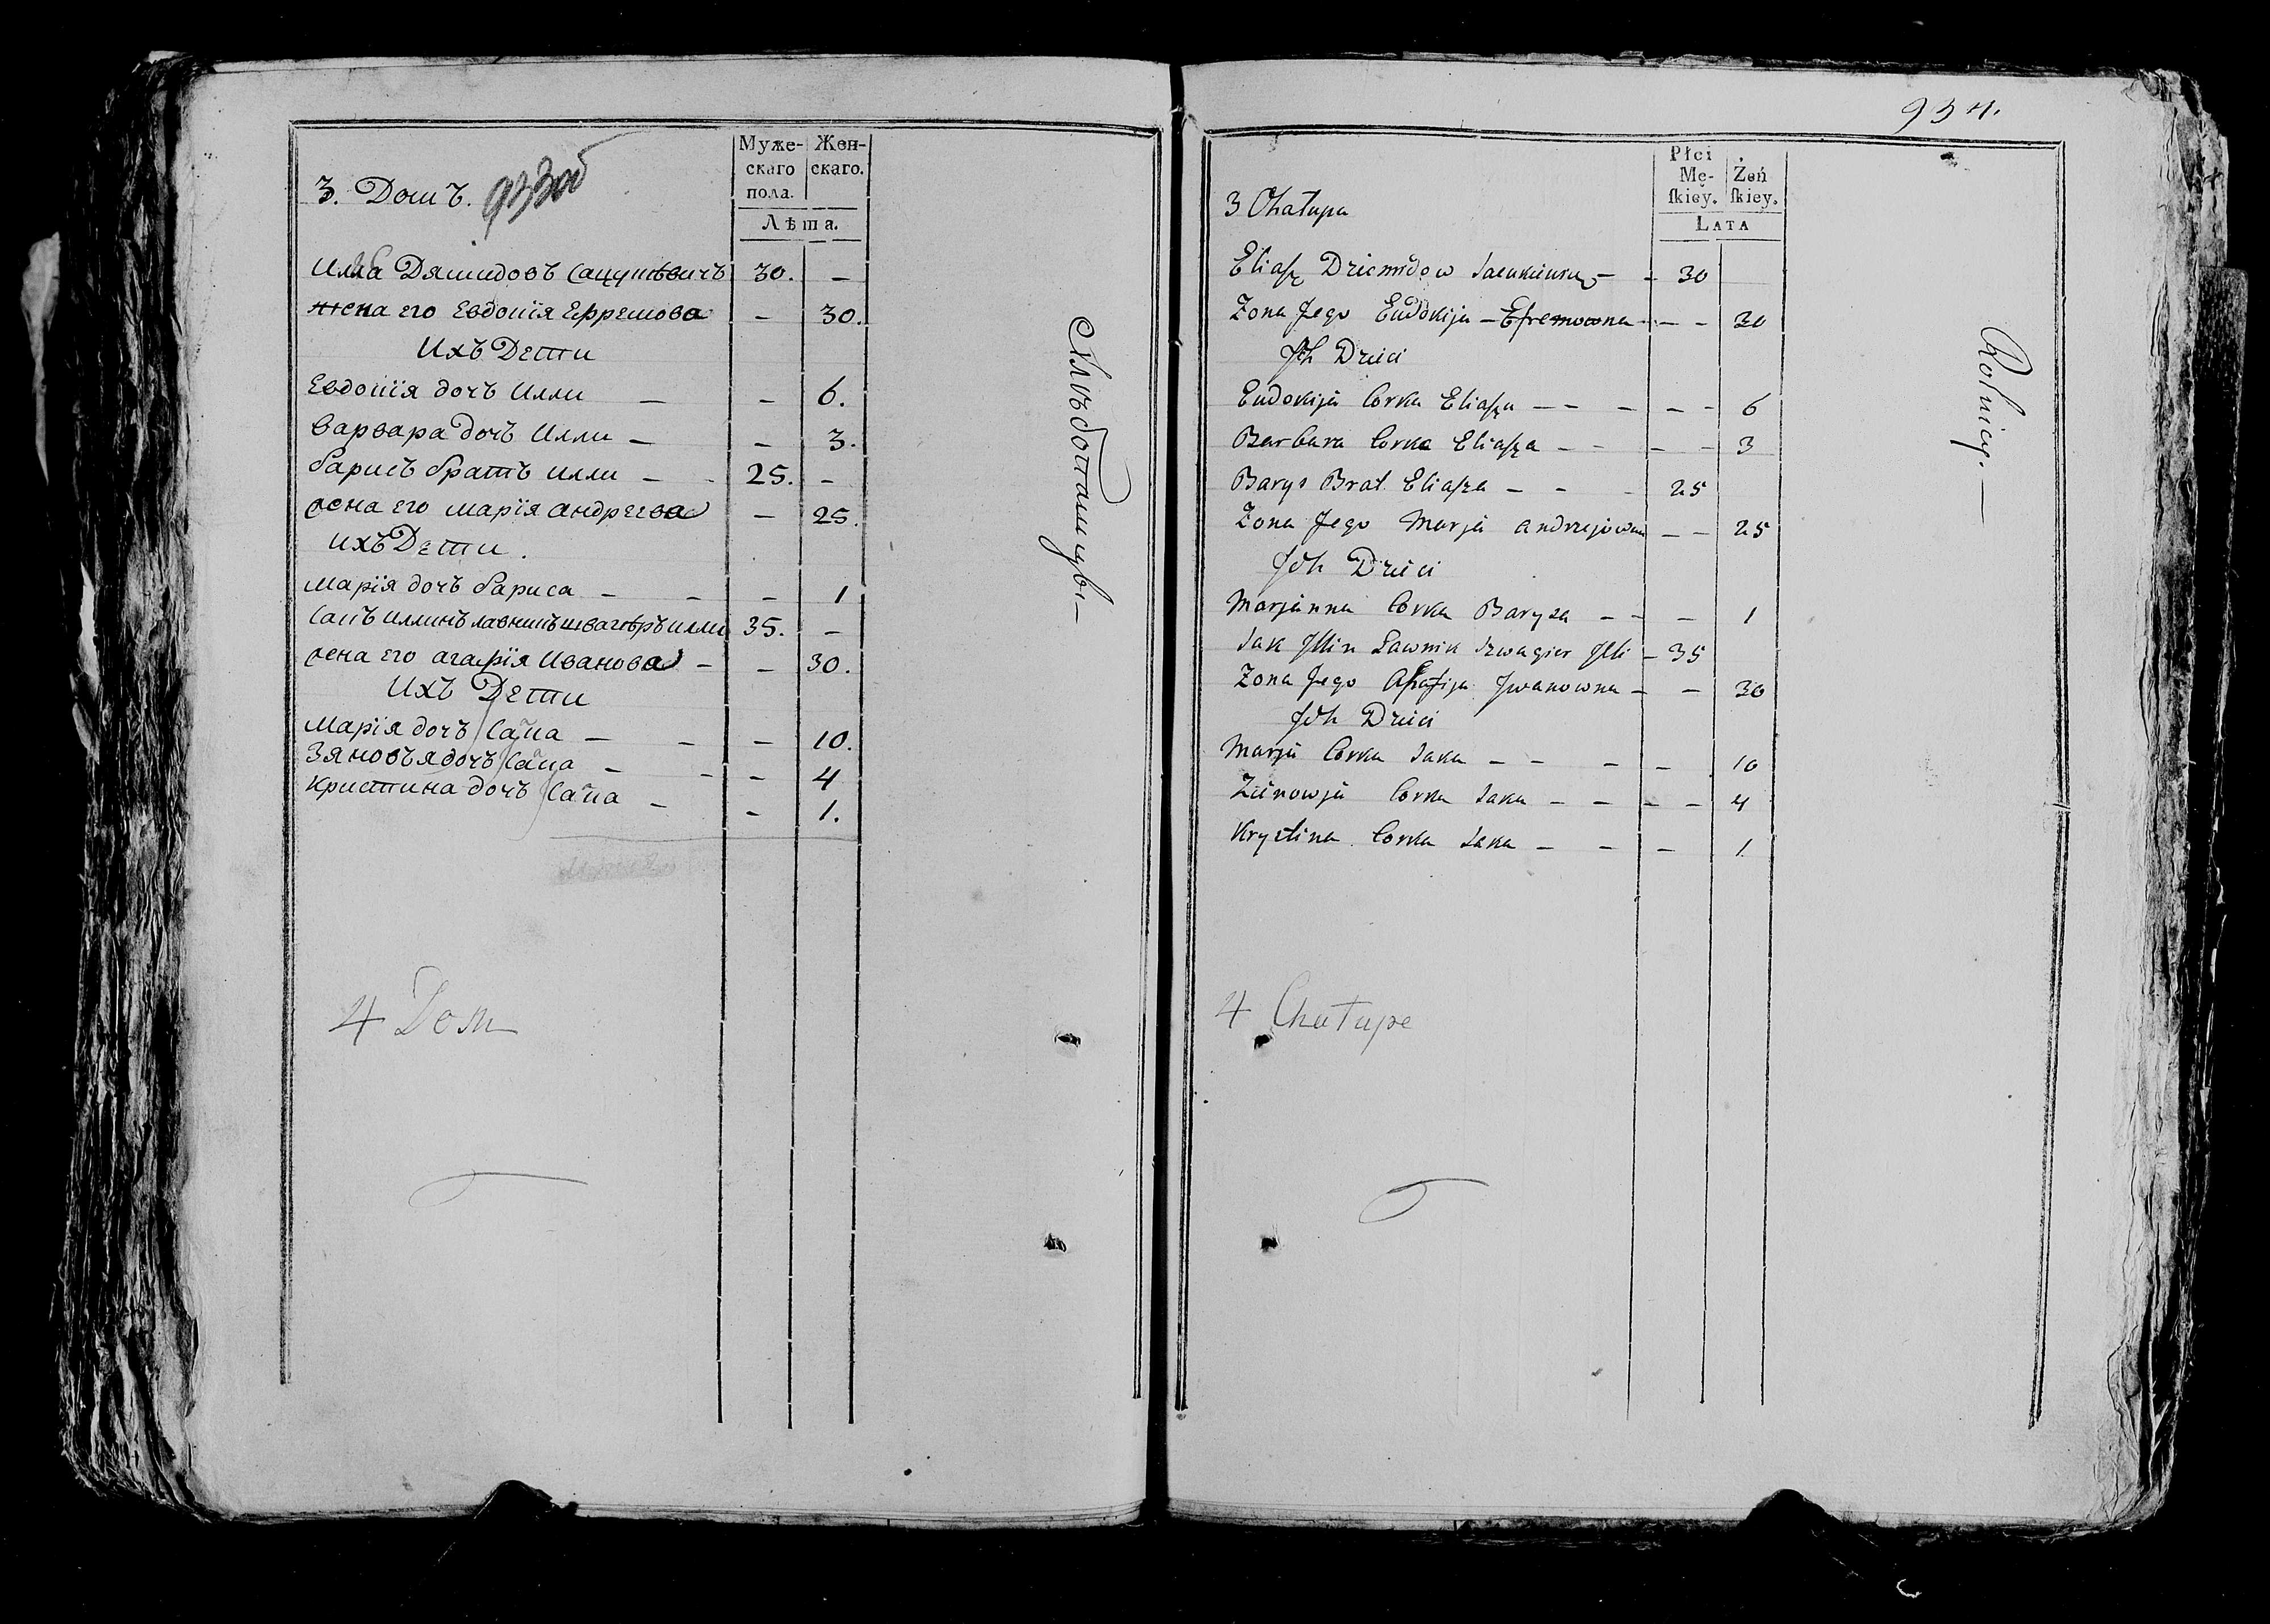 933об
Муже-скаго пола. Жен-скаго.
Лѣта.
3. Домъ.
Илла Дямидовъ Сацункевичъ 30. —
жена его Евдокія Ефремова — 30.
Ихъ Дети
Евдокія дочъ Илли — — 6.
Варвара дочъ Илли — — 3.
барисъ братъ илли — 25. —
жена его марія андреева — 25.
ихъ Дети.
марія дочъ бариса — — — 1
Сакъ иллинъ лавникъ швагеръ илли 35. —
жена его агафія Иванова — — 30.
Ихъ Дети
Марія дочъ Сака — — — 10.
Зяновъя дочъ Сака — — — 4
Кристина дочъ Сака — — 1.
Хлѣбопашцы —
4 Дом
934.
Płci Mę-ſkiey. Żeń ſkiey.
LATA
3 Chałupa
Eliaſz Dziemidow — — 30
Zona Jego Eudokija — Efremowna — — — 30
Jch Dzieci
Eudokija Corka Eliaſza — — — — — 6
Barbara Corka Eliaſza — — — — 3
Barys Brat Eliaſza — — — 25
Zona Jego Marja andrzejowna — — 25
Jch Dzieci
Marjanna Corka Barysa — — — 1
Sak Jllin Ławnik Szwagier Jlli — 35
Zona Jego Ahafija Jwanowna — — 30
Jch Dzieci
Marja Corka Saka — — — — 10
Zinowja Corka Saka — — — — 4
Krystina Corka Saka — — — 1.
Rolnicy. —
4 Chałupe